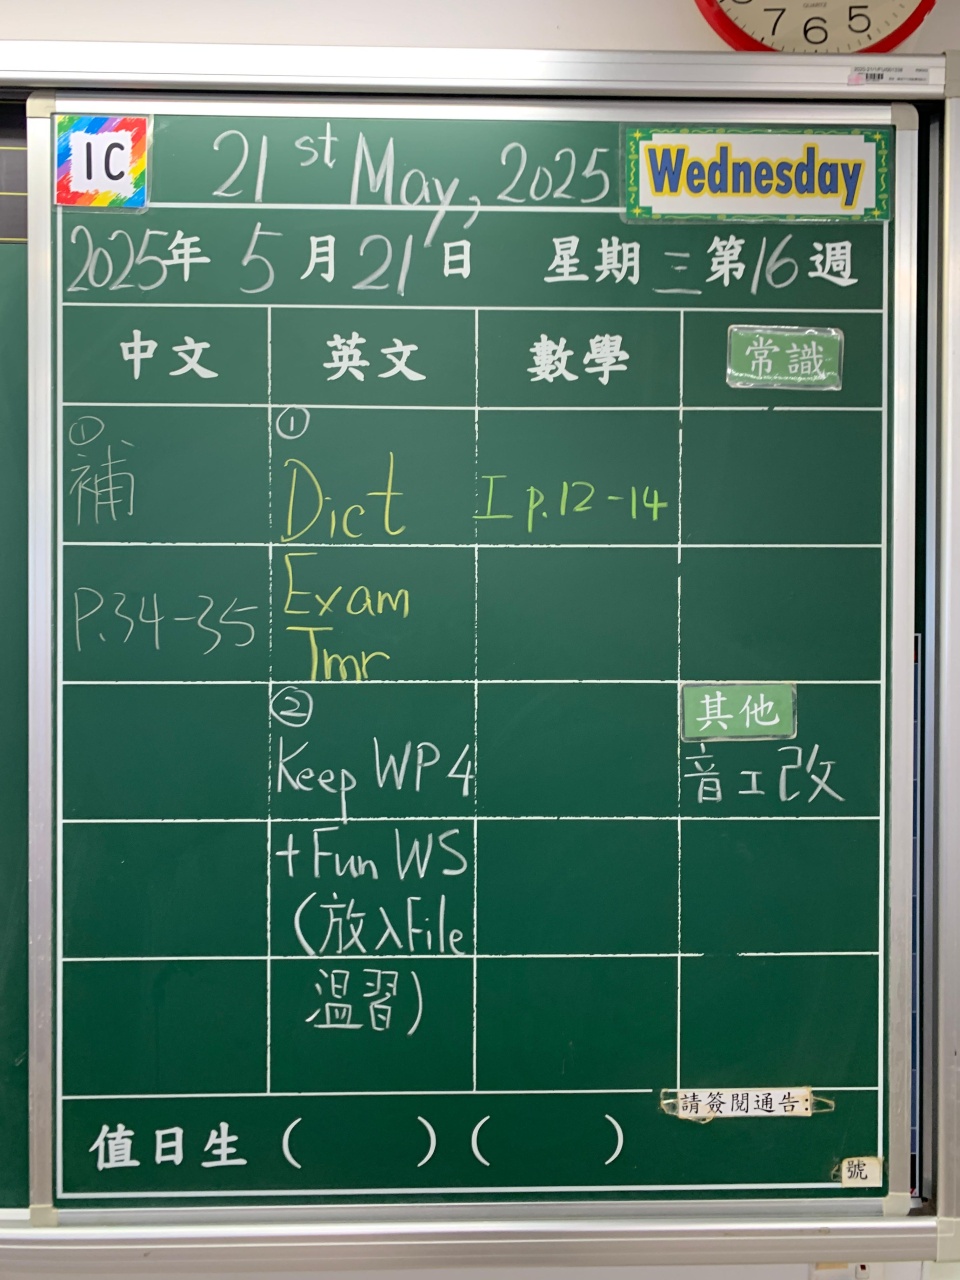 7 6 5
QUARTZ
1C
21st May, 2025
Wednesday
2025年 5月21日 星期三第16週
中文 英文 數學 常識
①
補
P.34-35
①
Dict
Exam
Tmr
②
Keep WP4
+Fun WS
(放入File
溫習)
I p.12-14
其他
音工改
請簽閱通告:
號
值日生 ( ) ( )